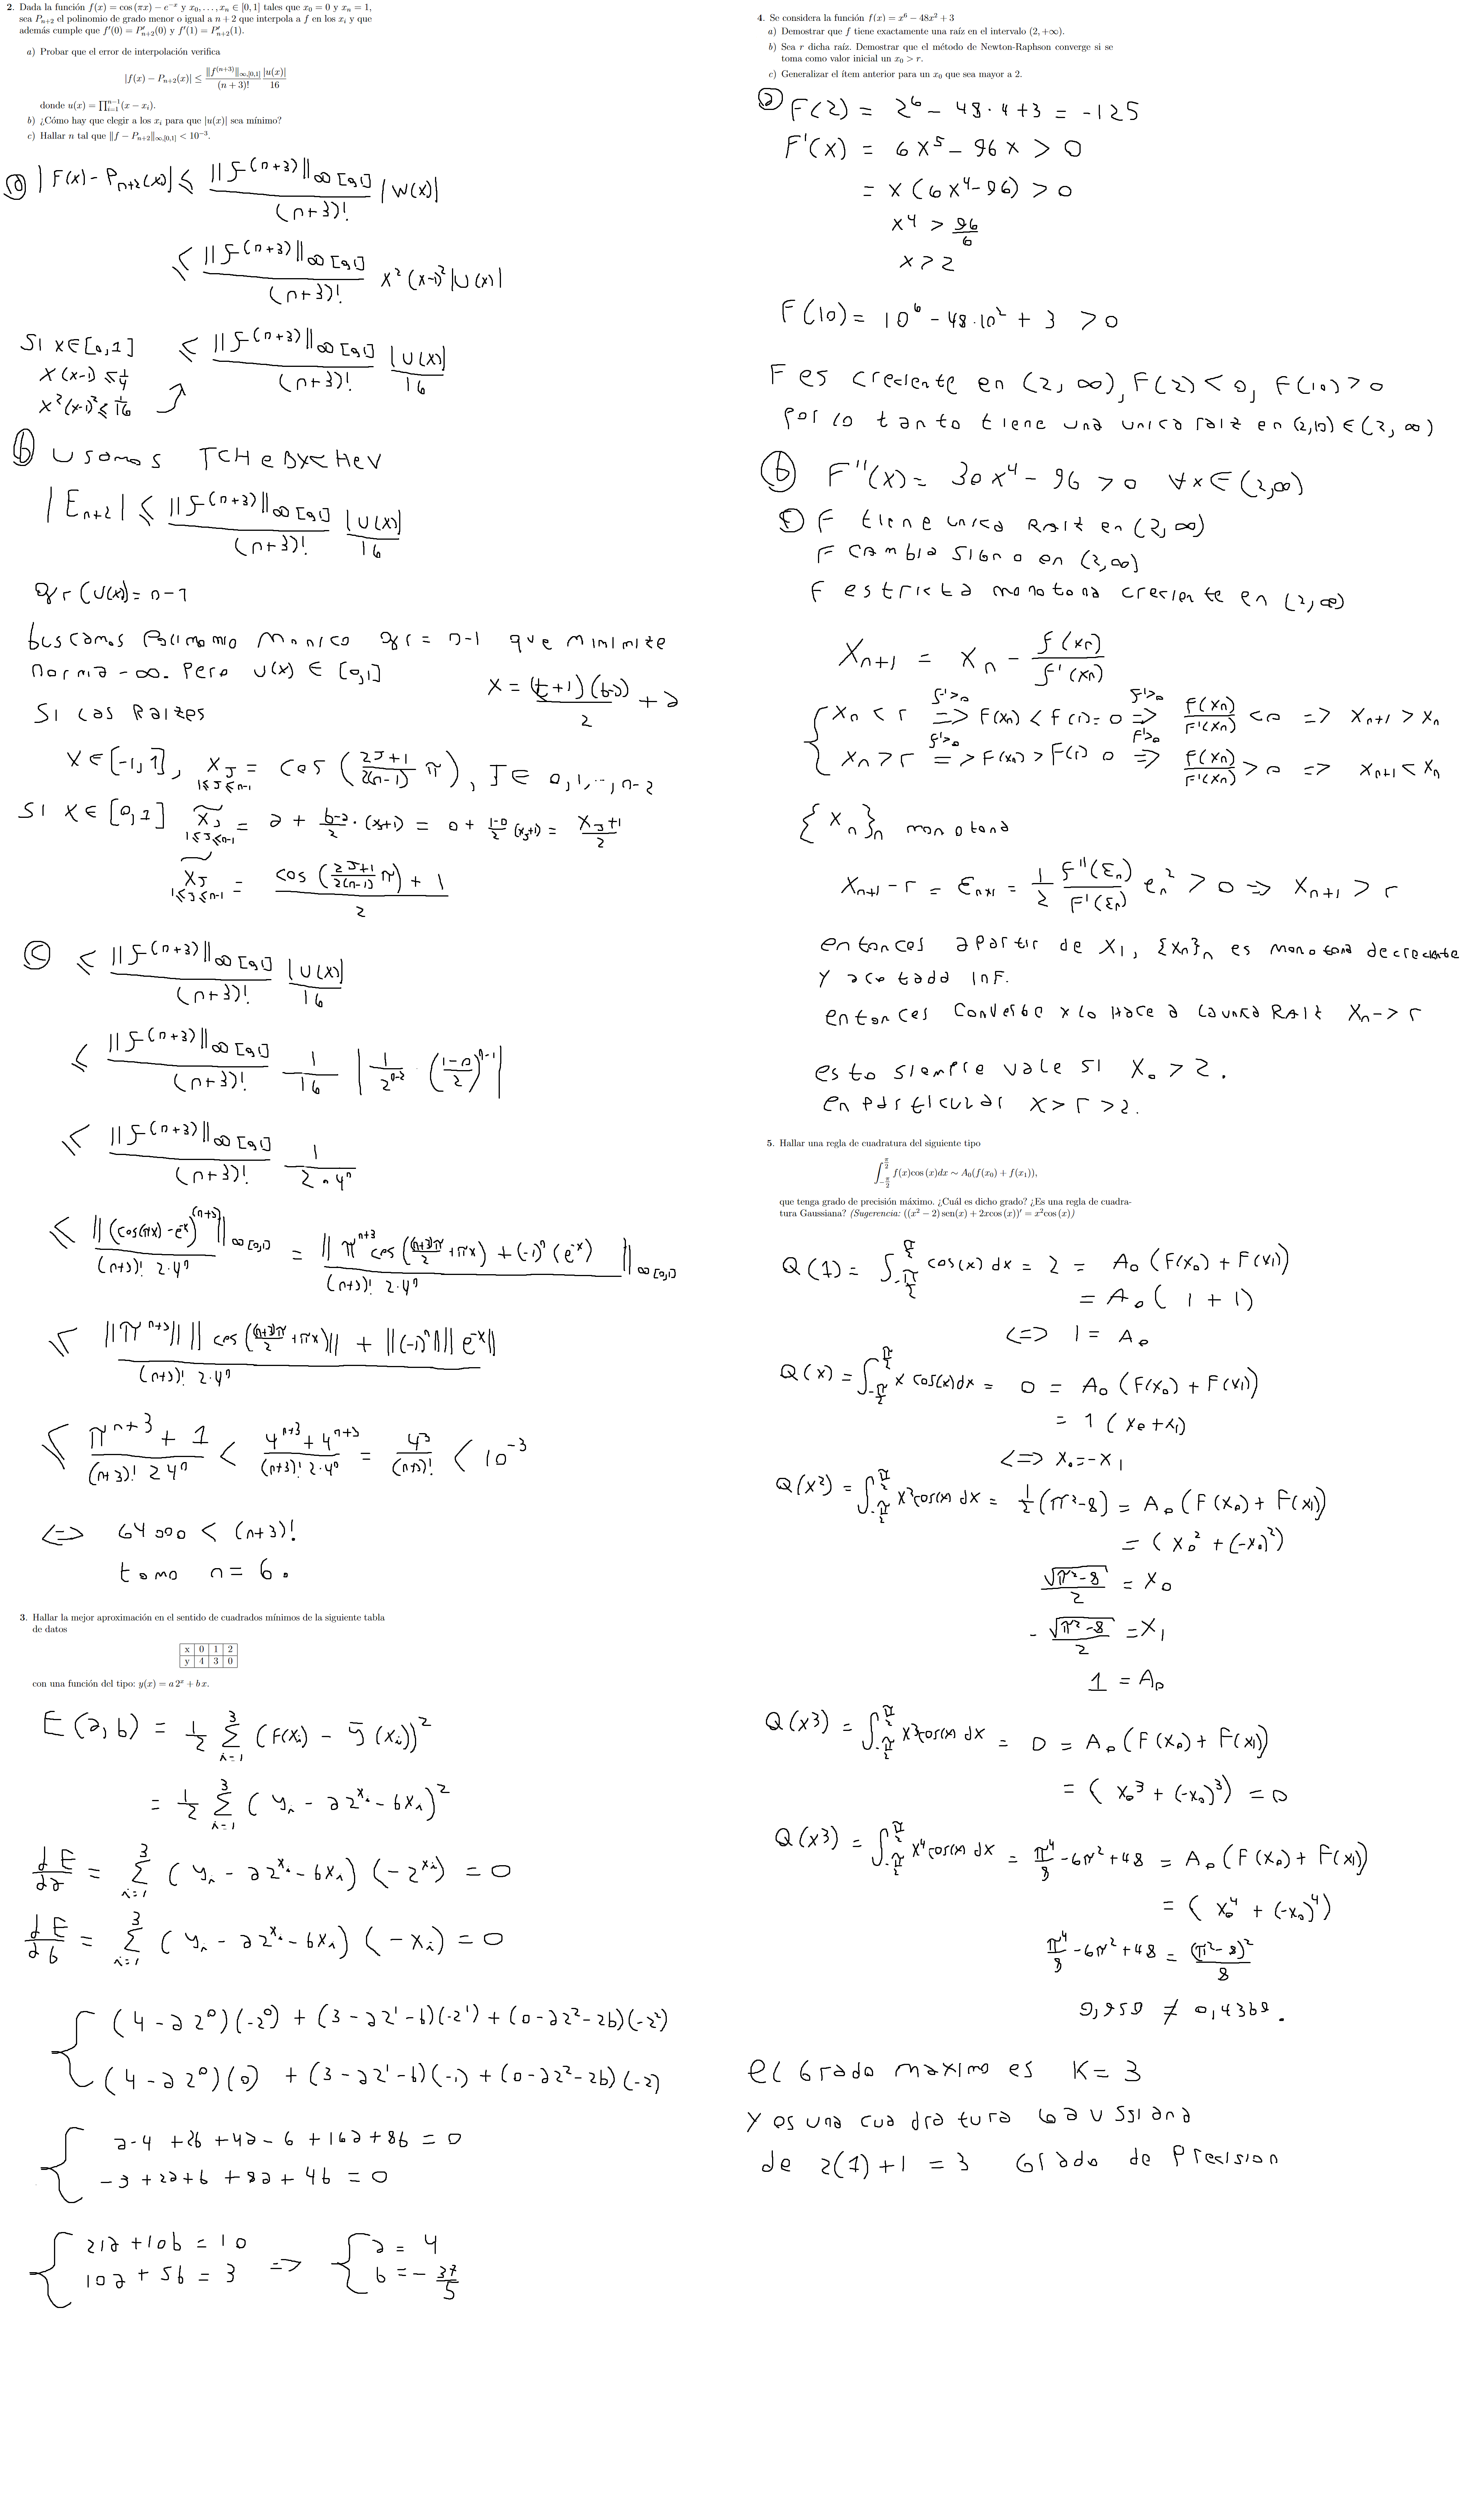 2. Dada la función f(x) = cos (πx) − e^{−x} y x_0, . . . , x_n ∈ [0, 1] tales que x_0 = 0 y x_n = 1,
sea P_{n+2} el polinomio de grado menor o igual a n + 2 que interpola a f en los x_i y que
además cumple que f'(0) = P'_{n+2}(0) y f'(1) = P'_{n+2}(1).
a) Probar que el error de interpolación verifica
|f(x) − P_{n+2}(x)| ≤ ‖f^{(n+3)}‖_{∞,[0,1]} / (n + 3)! |u(x)| / 16
donde u(x) = ∏_{i=1}^{n−1}(x − x_i).
b) ¿Cómo hay que elegir a los x_i para que |u(x)| sea mínimo?
c) Hallar n tal que ‖f − P_{n+2}‖_{∞,[0,1]} < 10^{−3}.
ⓐ |F(x) - P_{n+2}(x)| ≤ ||f^{(n+3)}||_{∞ [0,1]} / (n+3)! |W(x)|
≤ ||f^{(n+3)}||_{∞ [0,1]} / (n+3)! x²(x-1)²|U(x)|
SI x∈[0,1] ≤ ||f^{(n+3)}||_{∞ [0,1]} / (n+3)! |U(x)| / 16
x(x-1) ≤ 1/4
x²(x-1)² ≤ 1/16
ⓑ Usamos TCHeBYCHeV
|E_{n+2}| ≤ ||f^{(n+3)}||_{∞ [0,1]} / (n+3)! |U(x)| / 16
gr (U(x)) = n-1
buscamos Polimomio Monico gr = n-1 que minimize
norma -∞. Pero U(x) ∈ [0,1]
x = (t+1)(b-a) / 2 + a
SI Las Raizes
X∈[-1,1], X_J = cos (2J+1 / 2(n-1) π), J∈ 0,1,..,n-2
1≤J≤n-1
SI X∈[0,1] X̃_J = a + b-a/2 · (x_J+1) = 0 + 1-0/2 (x_J+1) = X_J+1 / 2
1≤J≤n-1
X̃_J = cos (2J+1 / 2(n-1) π) + 1 / 2
1≤J≤n-1
ⓒ ≤ ||f^{(n+3)}||_{∞ [0,1]} / (n+3)! |U(x)| / 16
≤ ||f^{(n+3)}||_{∞ [0,1]} / (n+3)! 1/16 |1/2^{n-2} · (1-0 / 2)^{n-1}|
≤ ||f^{(n+3)}||_{∞ [0,1]} / (n+3)! 1 / 2·4^n
≤ ||(cos(πx) - e^{-x})^{(n+3)}||_{∞ [0,1]} / (n+3)! 2·4^n = ||π^{n+3} cos((n+3)π/2 + πx) + (-1)^n (e^{-x})||_{∞ [0,1]} / (n+3)! 2·4^n
≤ ||π^{n+3}|| ||cos((n+3)π/2 + πx)|| + ||(-1)^n|| ||e^{-x}|| / (n+3)! 2·4^n
≤ π^{n+3} + 1 / (n+3)! 2 4^n < 4^{n+3} + 4^{n+3} / (n+3)! 2·4^n = 4³ / (n+3)! < 10^{-3}
<=> 64000 < (n+3)!
tomo n = 6.
3. Hallar la mejor aproximación en el sentido de cuadrados mínimos de la siguiente tabla
de datos
x 0 1 2
y 4 3 0
con una función del tipo: y(x) = a 2^x + b x.
E(a,b) = 1/2 Σ_{i=1}^{3} (F(x_i) - ȳ(x_i))²
= 1/2 Σ_{i=1}^{3} (y_i - a2^{x_i} - bx_i)²
dE/da = Σ_{i=1}^{3} (y_i - a2^{x_i} - bx_i)(-2^{x_i}) = 0
dE/db = Σ_{i=1}^{3} (y_i - a2^{x_i} - bx_i)(-x_i) = 0
{ (4 - a2⁰)(-2⁰) + (3 - a2¹ - b)(-2¹) + (0 - a2² - 2b)(-2²)
(4 - a2⁰)(0) + (3 - a2¹ - b)(-1) + (0 - a2² - 2b)(-2)
{ a - 4 + 2b + 4a - 6 + 16a + 8b = 0
-3 + 2a + b + 8a + 4b = 0
{ 21a + 10b = 10 => { a = 4
10a + 5b = 3 b = -37/5
4. Se considera la función f(x) = x^6 − 48x² + 3
a) Demostrar que f tiene exactamente una raíz en el intervalo (2, +∞).
b) Sea r dicha raíz. Demostrar que el método de Newton-Raphson converge si se
toma como valor inicial un x_0 > r.
c) Generalizar el ítem anterior para un x_0 que sea mayor a 2.
ⓐ F(2) = 2⁶ - 48·4 + 3 = -125
F'(x) = 6x⁵ - 96x > 0
= x(6x⁴ - 96) > 0
x⁴ > 96/6
x > 2
F(10) = 10⁶ - 48·10² + 3 > 0
F es creciente en (2, ∞), F(2) < 0, F(10) > 0
Por lo tanto tiene una unica raiz en (2,10) ∈ (2, ∞)
ⓑ F''(x) = 30x⁴ - 96 > 0 ∀x∈(2,∞)
ⓒ F tiene unica Raiz en (2,∞)
F cambia signo en (2,∞)
F estricta monotona creciente en (2,∞)
X_{n+1} = X_n - f(x_n) / f'(x_n)
{ X_n < r =>^{f'>0} F(x_n) < f(r) = 0 =>^{f'>0} F(x_n)/F'(x_n) < 0 => X_{n+1} > X_n
X_n > r =>^{f'>0} F(x_n) > F(r) 0 =>^{F'>0} F(x_n)/F'(x_n) > 0 => X_{n+1} < X_n
{X_n}_n monotona
X_{n+1} - r = Ɛ_{n+1} = 1/2 F''(Ɛ_n)/F'(Ɛ_n) e_n² > 0 => X_{n+1} > r
entonces apartir de X_1, {X_n}_n es monotona decreciente
Y acotada InF.
entonces Converge x lo Hace a la unica RAIz X_n -> r
esto siempre vale SI X_0 > 2.
en particular X > r > 2.
5. Hallar una regla de cuadratura del siguiente tipo
∫_{−π/2}^{π/2} f(x)cos (x)dx ∼ A_0(f(x_0) + f(x_1)),
que tenga grado de precisión máximo. ¿Cuál es dicho grado? ¿Es una regla de cuadra-
tura Gaussiana? (Sugerencia: ((x² − 2) sen(x) + 2xcos (x))' = x²cos (x))
Q(1) = ∫_{-π/2}^{π/2} cos(x) dx = 2 = A_0 (F(x_0) + F(x_1))
= A_0 (1 + 1)
<=> 1 = A_0
Q(x) = ∫_{-π/2}^{π/2} x cos(x) dx = 0 = A_0 (F(x_0) + F(x_1))
= 1 (x_0 + x_1)
<=> x_0 = -x_1
Q(x²) = ∫_{-π/2}^{π/2} x² cos(x) dx = 1/2 (π² - 8) = A_0 (F(x_0) + F(x_1))
= (x_0² + (-x_0)²)
√(π² - 8) / 2 = X_0
- √(π² - 8) / 2 = X_1
1 = A_0
Q(x³) = ∫_{-π/2}^{π/2} x³ cos(x) dx = 0 = A_0 (F(x_0) + F(x_1))
= (x_0³ + (-x_0)³) = 0
Q(x³) = ∫_{-π/2}^{π/2} x⁴ cos(x) dx = π⁴/8 - 6π² + 48 = A_0 (F(x_0) + F(x_1))
= (x_0⁴ + (-x_0)⁴)
π⁴/8 - 6π² + 48 = (π² - 8)² / 8
0,959 ≠ 0,4369.
el Grado maximo es K = 3
Y es una cuadratura Gaussiana
de 2(1) + 1 = 3 Grado de Precision